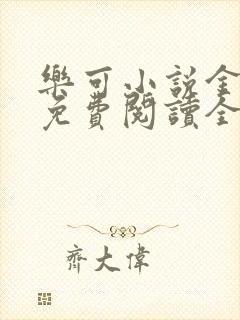 樂可小說全
免費閱讀全
齊大偉